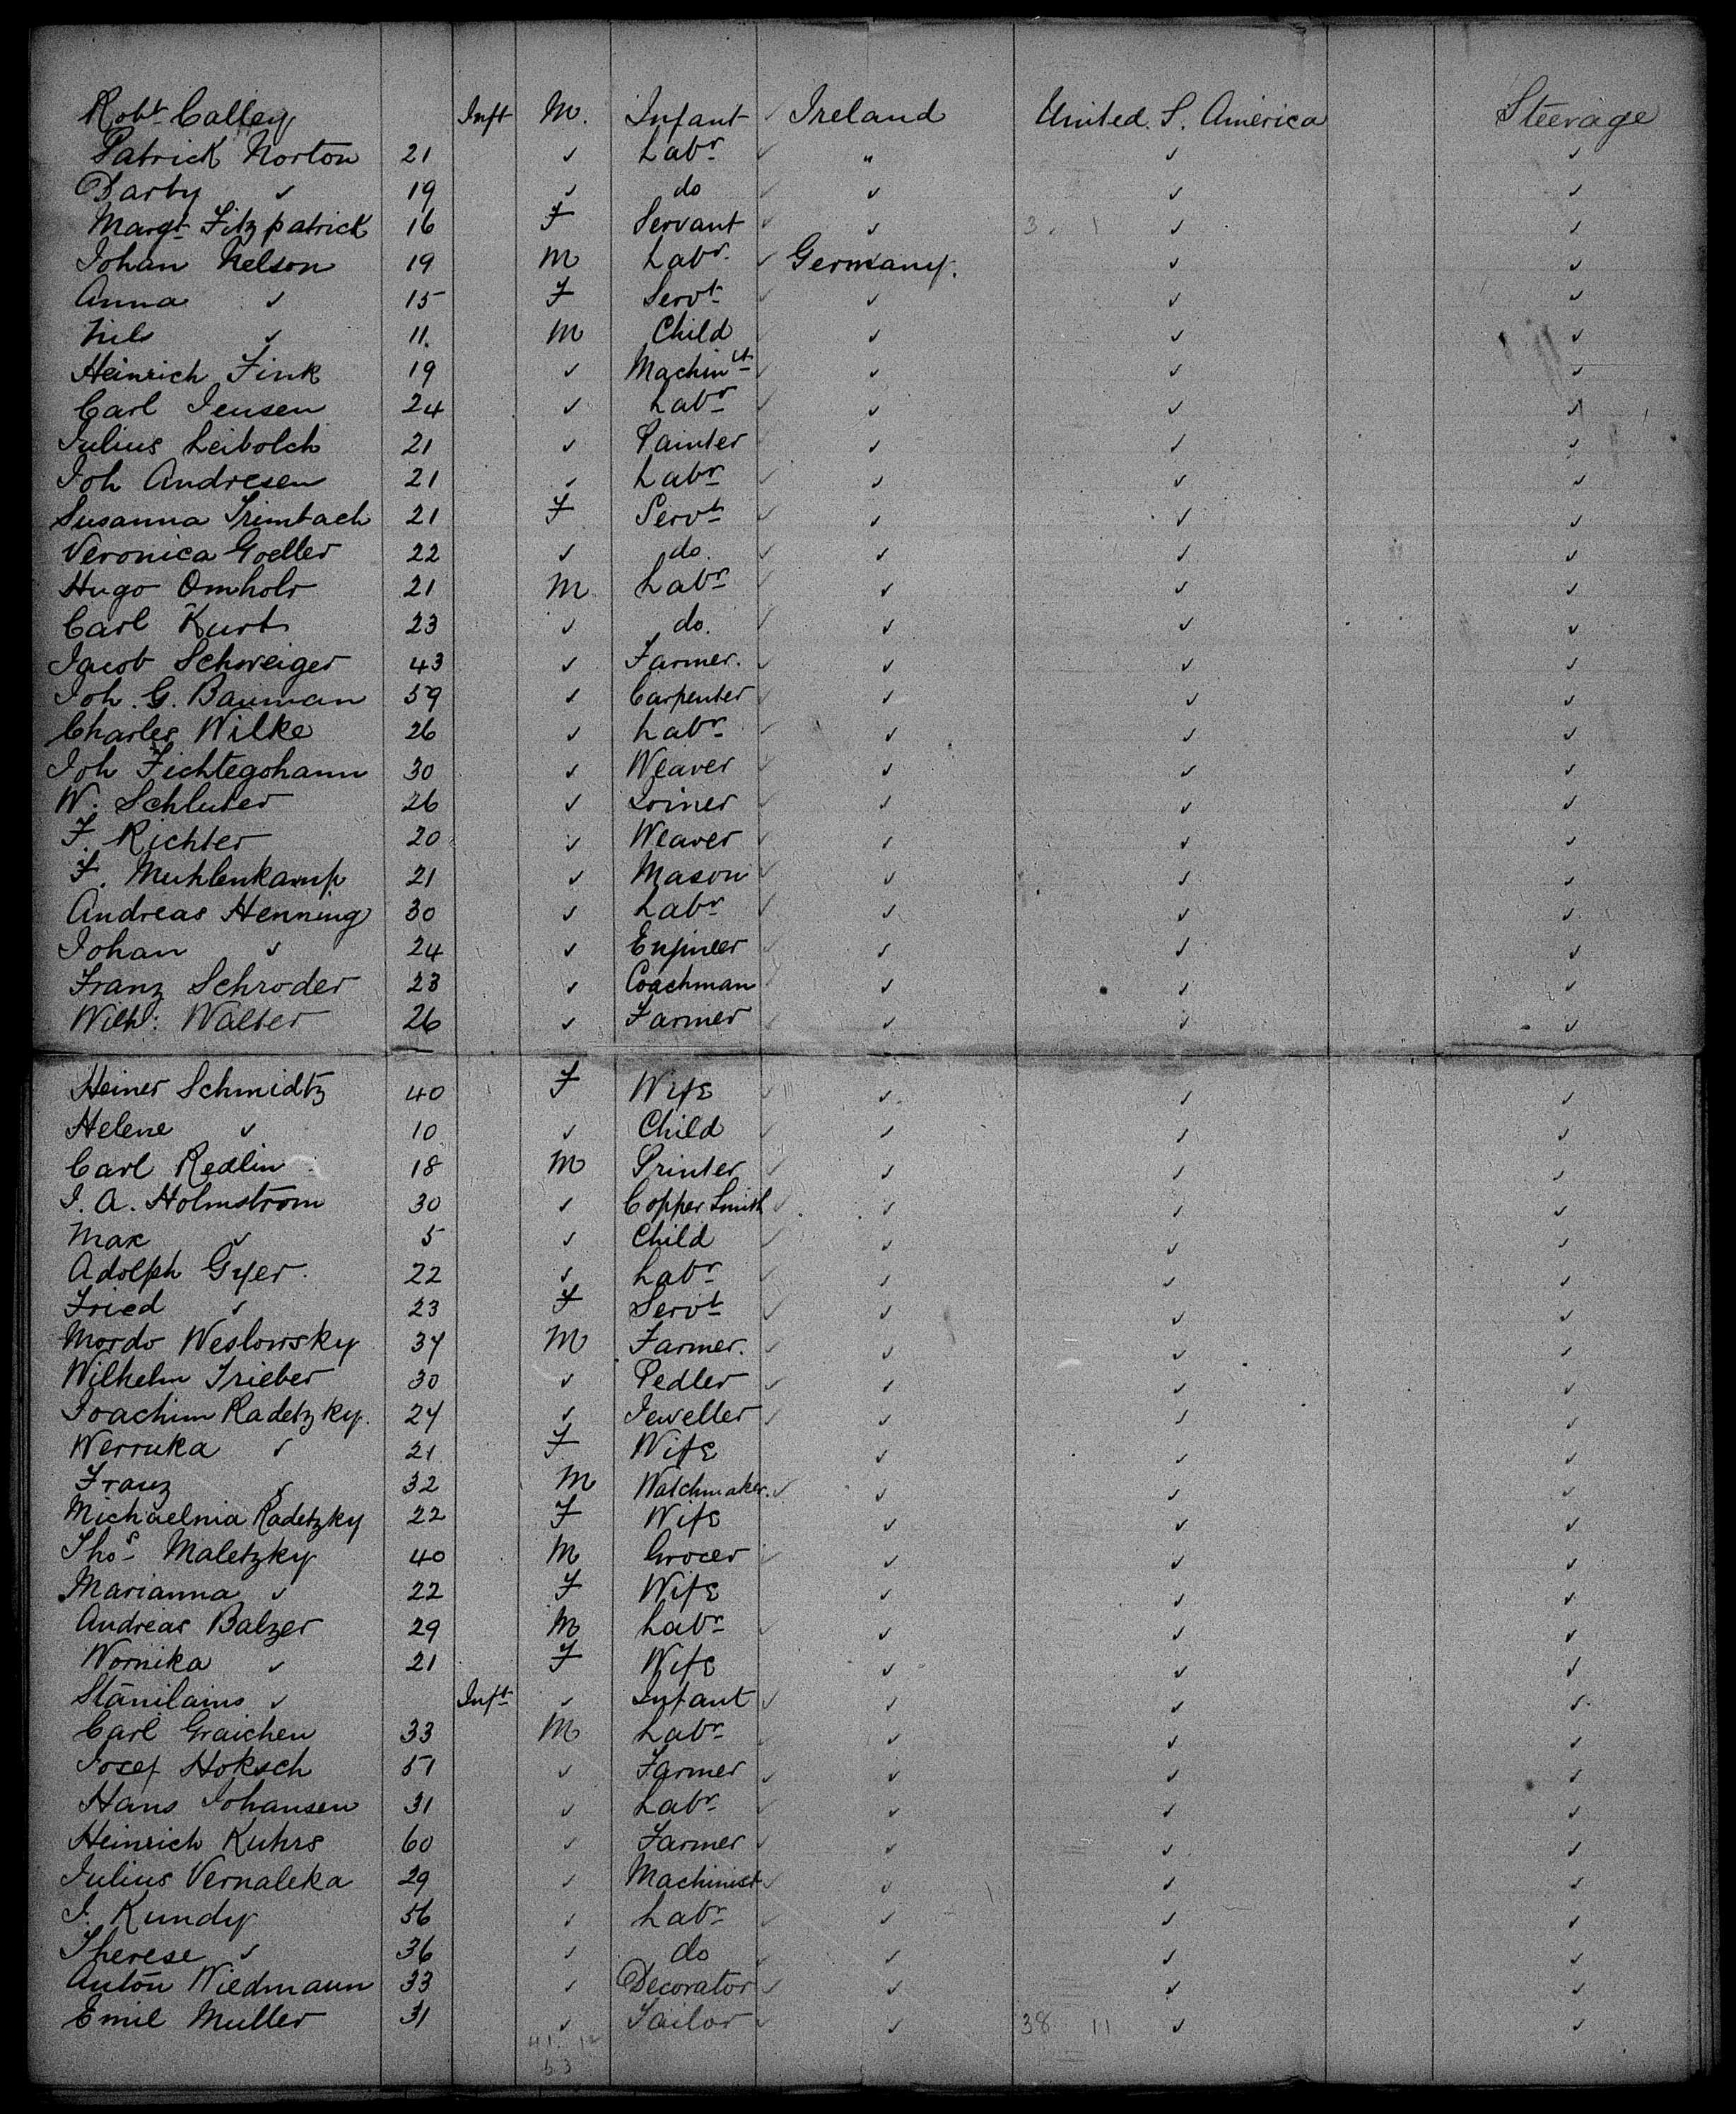 Robt Calley Inft M. Infant ✓ Ireland United. S. America Steerage
Patrick Norton 21 ✓ Labr ✓ " ✓ ✓
Darby ✓ 19 ✓ do ✓ ✓ ✓ ✓
Margt Fitzpatrick 16 F Servant ✓ ✓ 3. 1 ✓ ✓
Johan Nelson 19 M Labr. ✓ Germany. ✓ ✓
Anna ✓ 15 F Servt ✓ ✓ ✓ ✓
Nils ✓ 11. M Child ✓ ✓ ✓ ✓
Heinrich Fink 19 ✓ Machinist ✓ ✓ ✓ ✓
Carl Jensen 24 ✓ Labr ✓ ✓ ✓ ✓
Julius Leibolch 21 ✓ Painter ✓ ✓ ✓ ✓
Joh Andresen 21 ✓ Labr ✓ ✓ ✓ ✓
Susanna Trimbach 21 F Servt ✓ ✓ ✓ ✓
Veronica Goeller 22 ✓ do. ✓ ✓ ✓ ✓
Hugo Omholr 21 M Labr ✓ ✓ ✓ ✓
Carl Kurt 23 ✓ do. ✓ ✓ ✓ ✓
Jacob Schweiger 43 ✓ Farmer. ✓ ✓ ✓ ✓
Joh. G. Bauman 59 ✓ Carpenter ✓ ✓ ✓ ✓
Charles Wilke 26 ✓ Labr ✓ ✓ ✓ ✓
Joh Fichtegohann 30 ✓ Weaver ✓ ✓ ✓ ✓
W. Schluter 26 ✓ Joiner ✓ ✓ ✓ ✓
F. Richter 20 ✓ Weaver ✓ ✓ ✓ ✓
F. Muhlenkamp 21 ✓ Mason ✓ ✓ ✓ ✓
Andreas Henning 30 ✓ Labr ✓ ✓ ✓ ✓
Johan ✓ 24 ✓ Engineer ✓ ✓ ✓ ✓
Franz Schroder 23 ✓ Coachman ✓ ✓ ✓ ✓
Wilh: Walter 26 ✓ Farmer ✓ ✓ ✓ ✓
Heiner Schmidtz 40 F Wife ✓ ✓ ✓ ✓
Helene ✓ 10 ✓ Child ✓ ✓ ✓ ✓
Carl Redlin 18 M Printer ✓ ✓ ✓ ✓
J. A. Holmstrom 30 ✓ Copper Smith ✓ ✓ ✓ ✓
Max ✓ 5 ✓ Child ✓ ✓ ✓ ✓
Adolph Gyer. 22 ✓ Labr ✓ ✓ ✓ ✓
Fried ✓ 23 F Servt ✓ ✓ ✓ ✓
Mordo Weslowsky 34 M Farmer. ✓ ✓ ✓ ✓
Wilhelm Trieber 30 ✓ Pedler ✓ ✓ ✓ ✓
Joachim Radetzky. 24 ✓ Jeweller ✓ ✓ ✓ ✓
Werruka ✓ 21 F Wife ✓ ✓ ✓
Franz ✓ 32 M Watchmaker. ✓ ✓ ✓ ✓
Michaelnia Radetzky 22 F Wife ✓ ✓ ✓
Thos Maletzky 40 M Grocer ✓ ✓ ✓ ✓
Marianna ✓ 22 F Wife ✓ ✓ ✓
Andreas Balzer 29 M Labr ✓ ✓ ✓ ✓
Wornika ✓ 21 F Wife ✓ ✓ ✓
Stanilains ✓ Inft ✓ Infant ✓ ✓ ✓ ✓
Carl Graichen 33 M Labr ✓ ✓ ✓ ✓
Josef Hoksch 51 ✓ Farmer ✓ ✓ ✓ ✓
Hans Johansen 31 ✓ Labr ✓ ✓ ✓ ✓
Heinrich Kuhrs 60 ✓ Farmer ✓ ✓ ✓ ✓
Julius Vernaleka 29 ✓ Machinist ✓ ✓ ✓ ✓
J. Kundy 56 ✓ Labr ✓ ✓ ✓ ✓
Therese ✓ 36 ✓ do ✓ ✓ ✓ ✓
Anton Wiedmann 33 ✓ Decorator ✓ ✓ ✓ ✓
Emil Muller 31 ✓ Tailor ✓ ✓ 38 11 ✓ ✓
41. 12
53